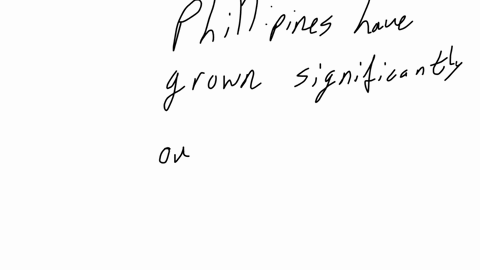 Phillipines have
grown significantly
ov